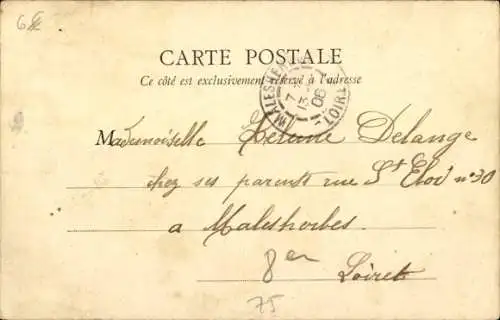 CARTE POSTALE
Ce côté est exclusivement réservé à l'adresse
MALESHERBES LOIRET
06
Mademoiselle Delange
chez ses parents rue St Eloi n° 30
a Malesherbes
Loiret
75